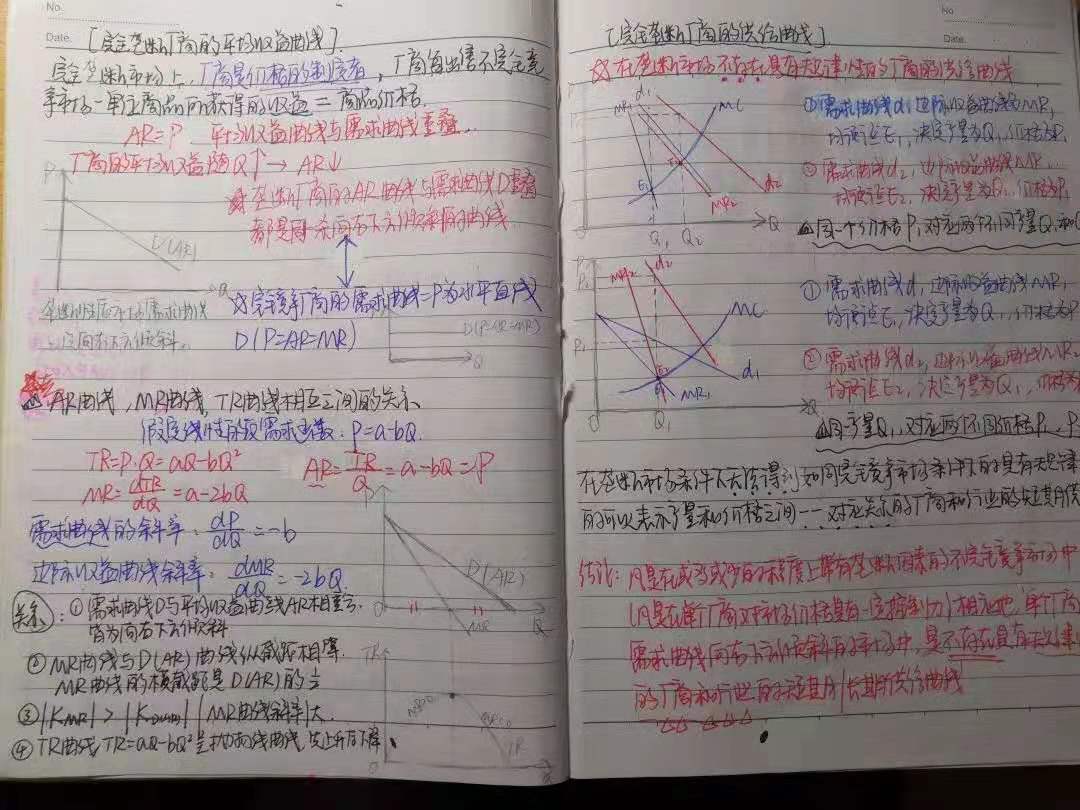 No.
Date.
[完全垄断厂商的平均收益曲线].
完全垄断市场上,厂商是价格的制定者,厂商每出售不完全竞
争市场一单位商品所获得的收益=商品价格.
AR=P 平均收益曲线与需求曲线重叠.
厂商的平均收益随Q↑→AR↓
P
☆垄断厂商的AR曲线与需求曲线D重叠
都是同一条向右下方倾斜的曲线
D(AR)
Q
垄断性厂商的需求曲线
向右下方倾斜.
☆完竞争厂商的需求曲线=P为水平直线
D(P=AR=MR)
D(P=AR=MR)
Q
AR曲线,MR曲线,TR曲线相互之间的关系
假定线性的反需求函数:P=a-bQ.
TR=P·Q=aQ-bQ²
AR=TR/Q=a-bQ=P
MR=dTR/dQ=a-2bQ
需求曲线的斜率:dP/dQ=-b
边际收益曲线斜率:dMR/dQ=-2bQ
P
D(AR)
MR
O
Q
关系:①需求曲线D与平均收益曲线AR相重合.
皆为向右下方倾斜
②MR曲线与D(AR)曲线纵截距相等.
MR曲线的横截距是D(AR)的½
③|KMR|>|KD(AR)| |MR曲线斜率|大.
④TR曲线TR=aQ-bQ²是抛物线曲线,先上升后下降.
TR
TR
O
Q
No.
Date.
[完全垄断厂商的供给曲线]
☆在垄断市场不存在具有规律性的厂商的供给曲线
MR1
d1
MC
E1
E2
MR2
d2
O
Q1
Q2
Q
①需求曲线d1,边际收益曲线MR1
均衡点E1,决定产量为Q1,价格为P1
②需求曲线d2,边际收益曲线MR2
均衡点E2,决定产量为Q2,价格为P1
△同一个价格P1,对应两个不同产量Q1和Q
P
P2
P1
MR2
d2
MC
d1
MR1
O
Q1
Q
①需求曲线d1,边际收益曲线MR1
均衡点E1,决定产量为Q1,价格为P
②需求曲线d2,边际收益曲线MR2
均衡点E2,决定产量为Q1,价格为P
△同一产量Q1,对应两个不同价格P1,P
在垄断市场条件下无法得到如同完全竞争市场条件下的具有规律
的可以表示产量和价格之间一一对应关系的厂商和行业的短期供
结论:凡是在或多或少的程度上带有垄断因素的不完全竞争市场中
(凡是在单个厂商对市场价格具有一定控制力)相应地,单个厂商
需求曲线向右下方倾斜的市场中,是不存在具有规律
的厂商和行业的短期/长期的供给曲线